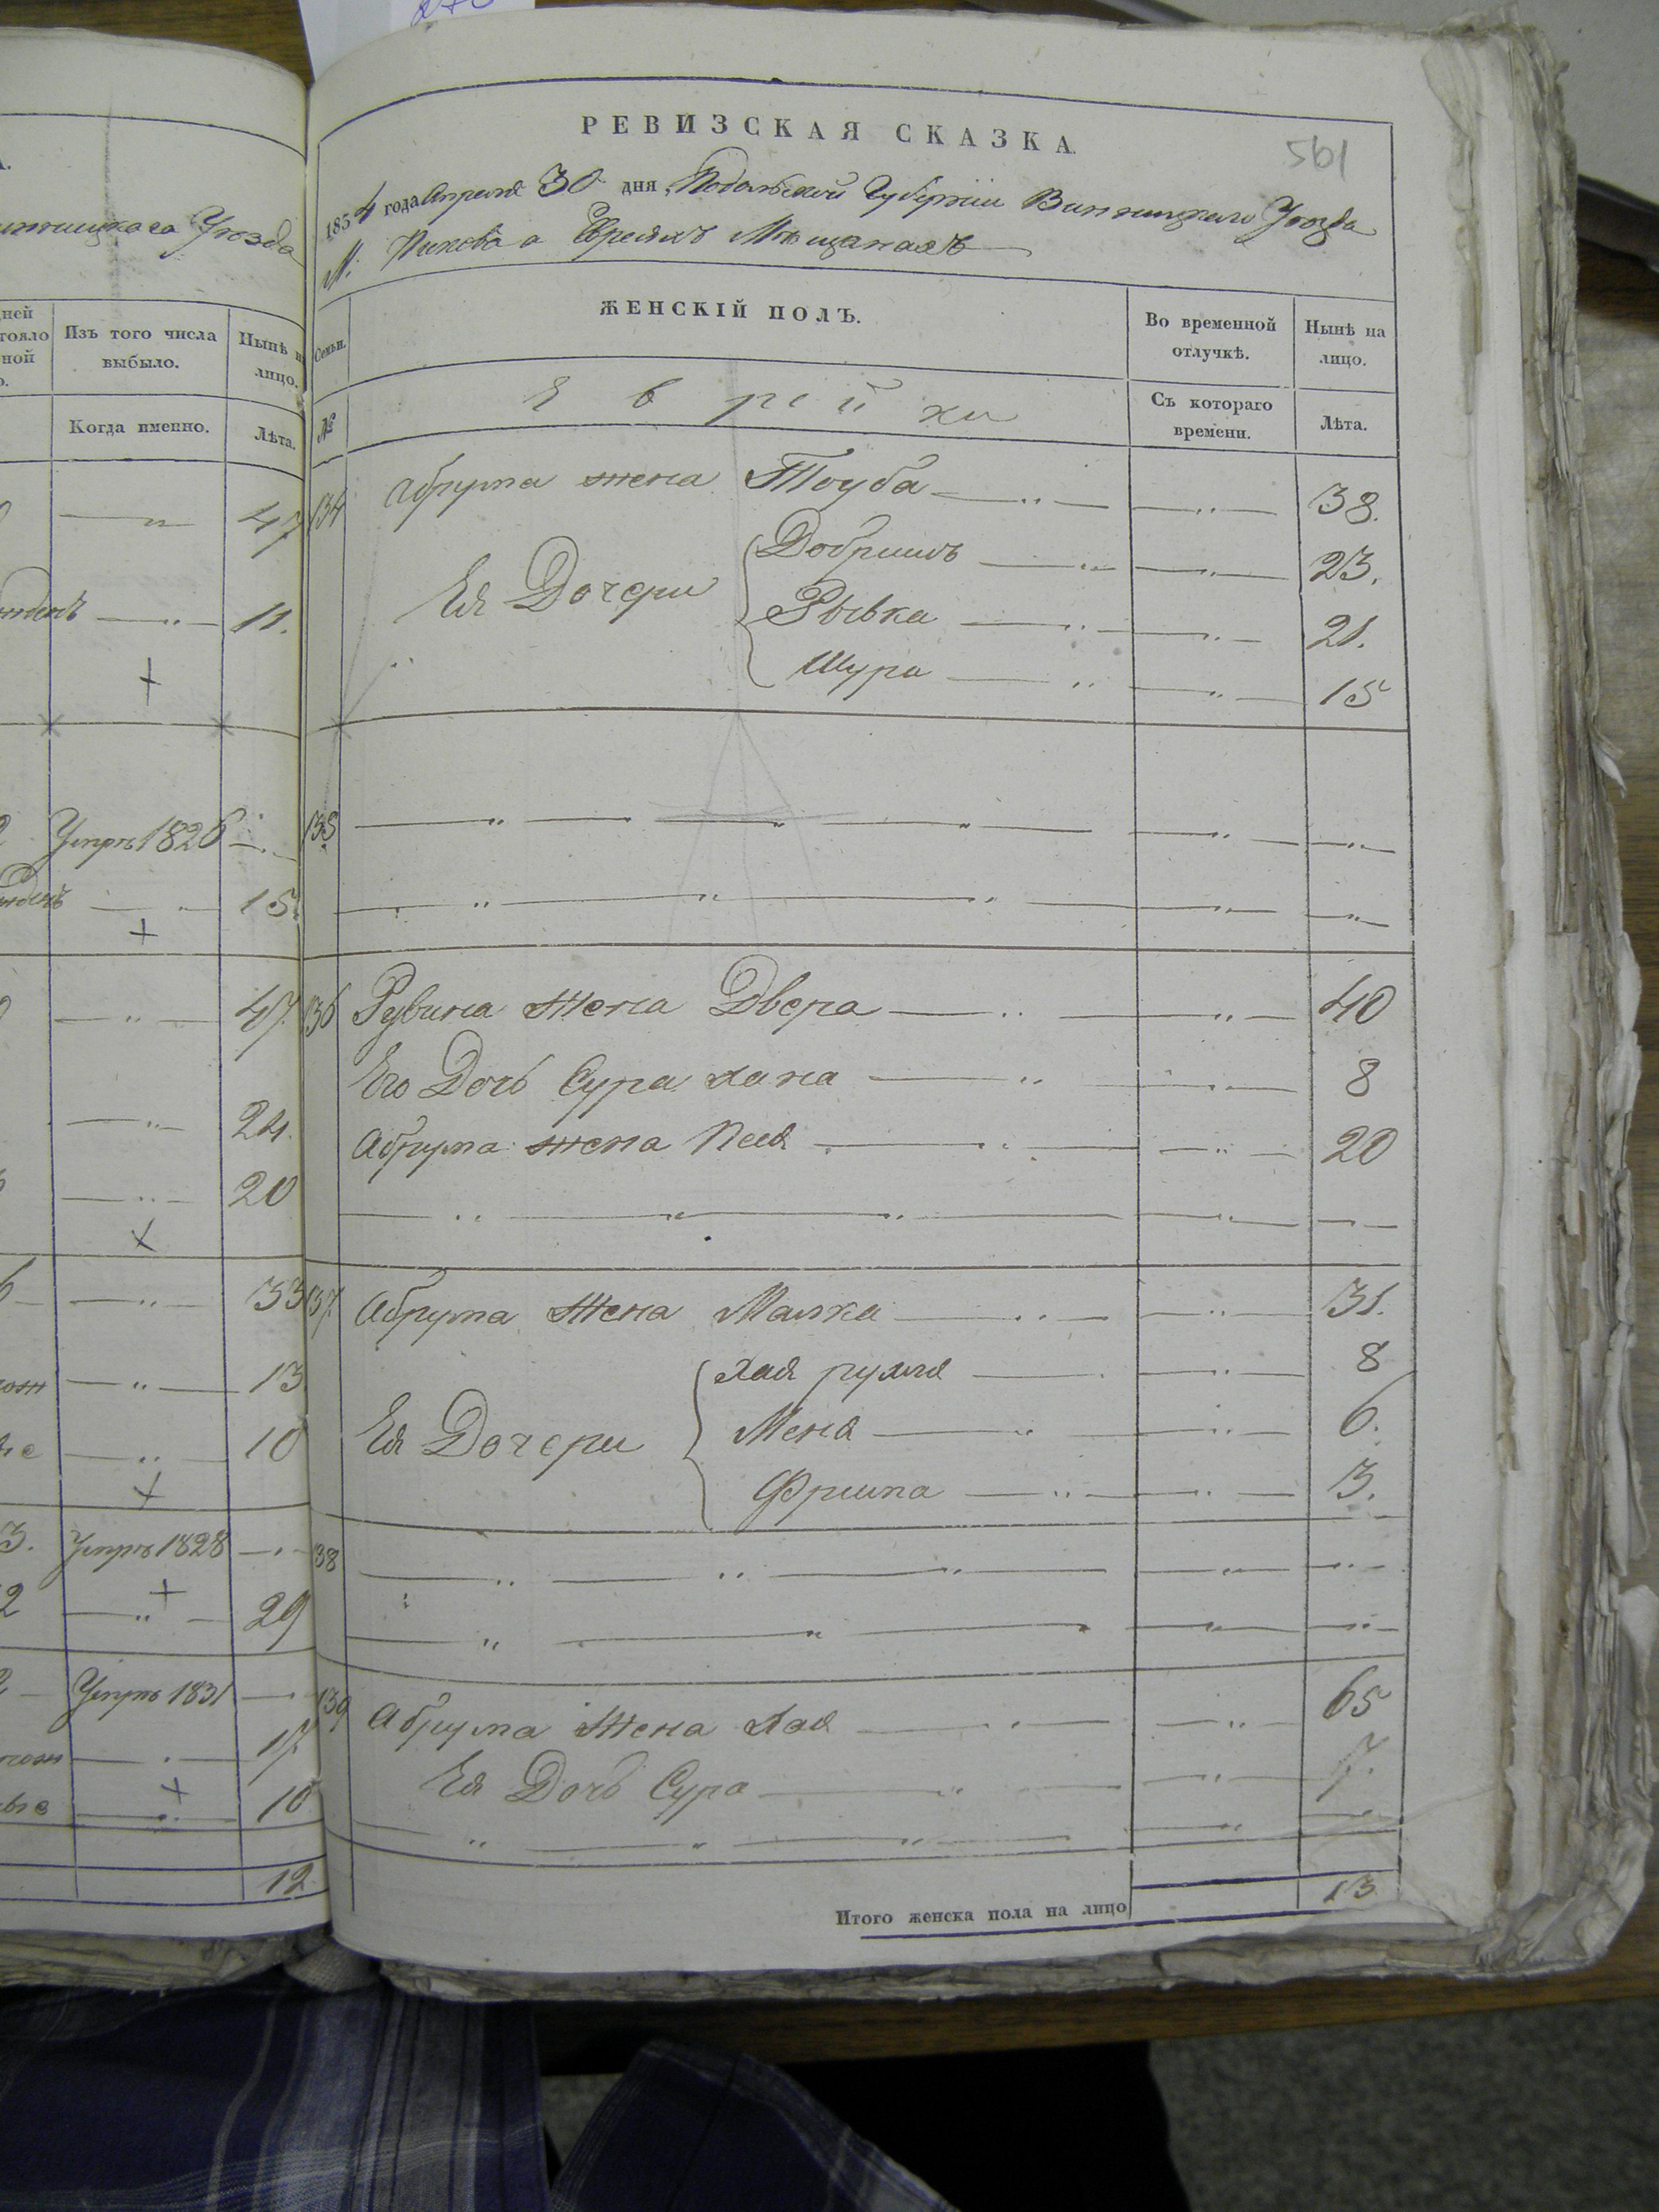 РЕВИЗСКАЯ СКАЗКА.
561
1834 года Апреля 30 дня, Подольской Губернии Винницкого Уезда
М. Пикова о Евреяхъ Мещанахъ
ЖЕНСКІЙ ПОЛЪ.
Во временной отлучкѣ.
Нынѣ на лицо.
Семьи.
№
Еврейки
Съ котораго времени.
Лѣта.
134 Абрума жена Тоуба — „ — — „ — 38.
Ея Дочери
Добришъ — „ — „ — 23.
Рывка — „ — — „ — 21.
Шура — „ — „ — 15
135 — „ — — „ — „ — — „ — — „ —
— „ — „ — „ — — „ — — „ —
136 Рувина жена Двера — „ — — „ — 40
Его Дочь Сура хана — „ — „ — 8
Абрума жена Пея — „ — — „ — 20
— „ — „ — „ — — „ — — „ —
137. Абрума Жена Малка — „ — — „ — 31.
Ея Дочери
Хая рухля — — „ — 8
Меня — „ — „ — 6.
Фрима — „ — „ — 3.
138 — „ — „ — „ — — „ — — „ —
— „ — „ — — „ — — „ —
139 Абрума Жена Хая — „ — — „ — 65
Ея Дочь Сура — „ — — „ — 7.
— „ — „ — „ — — „ — —
Итого женска пола на лицо 13
винницкаго Уезда
Изъ того числа выбыло.
Нынѣ на лицо.
Когда именно.
Лѣта.
— „ — 47
— „ — 11.
Умре 1826 — „ —
— „ — 15.
— „ — 47.
— „ — 24.
— „ — 20
— „ — 33
— „ — 13
— „ — 10
3. Умре 1828 — „ —
2 — „ — 29
Умре 1831 —
— „ — 17
— „ — 10
12.